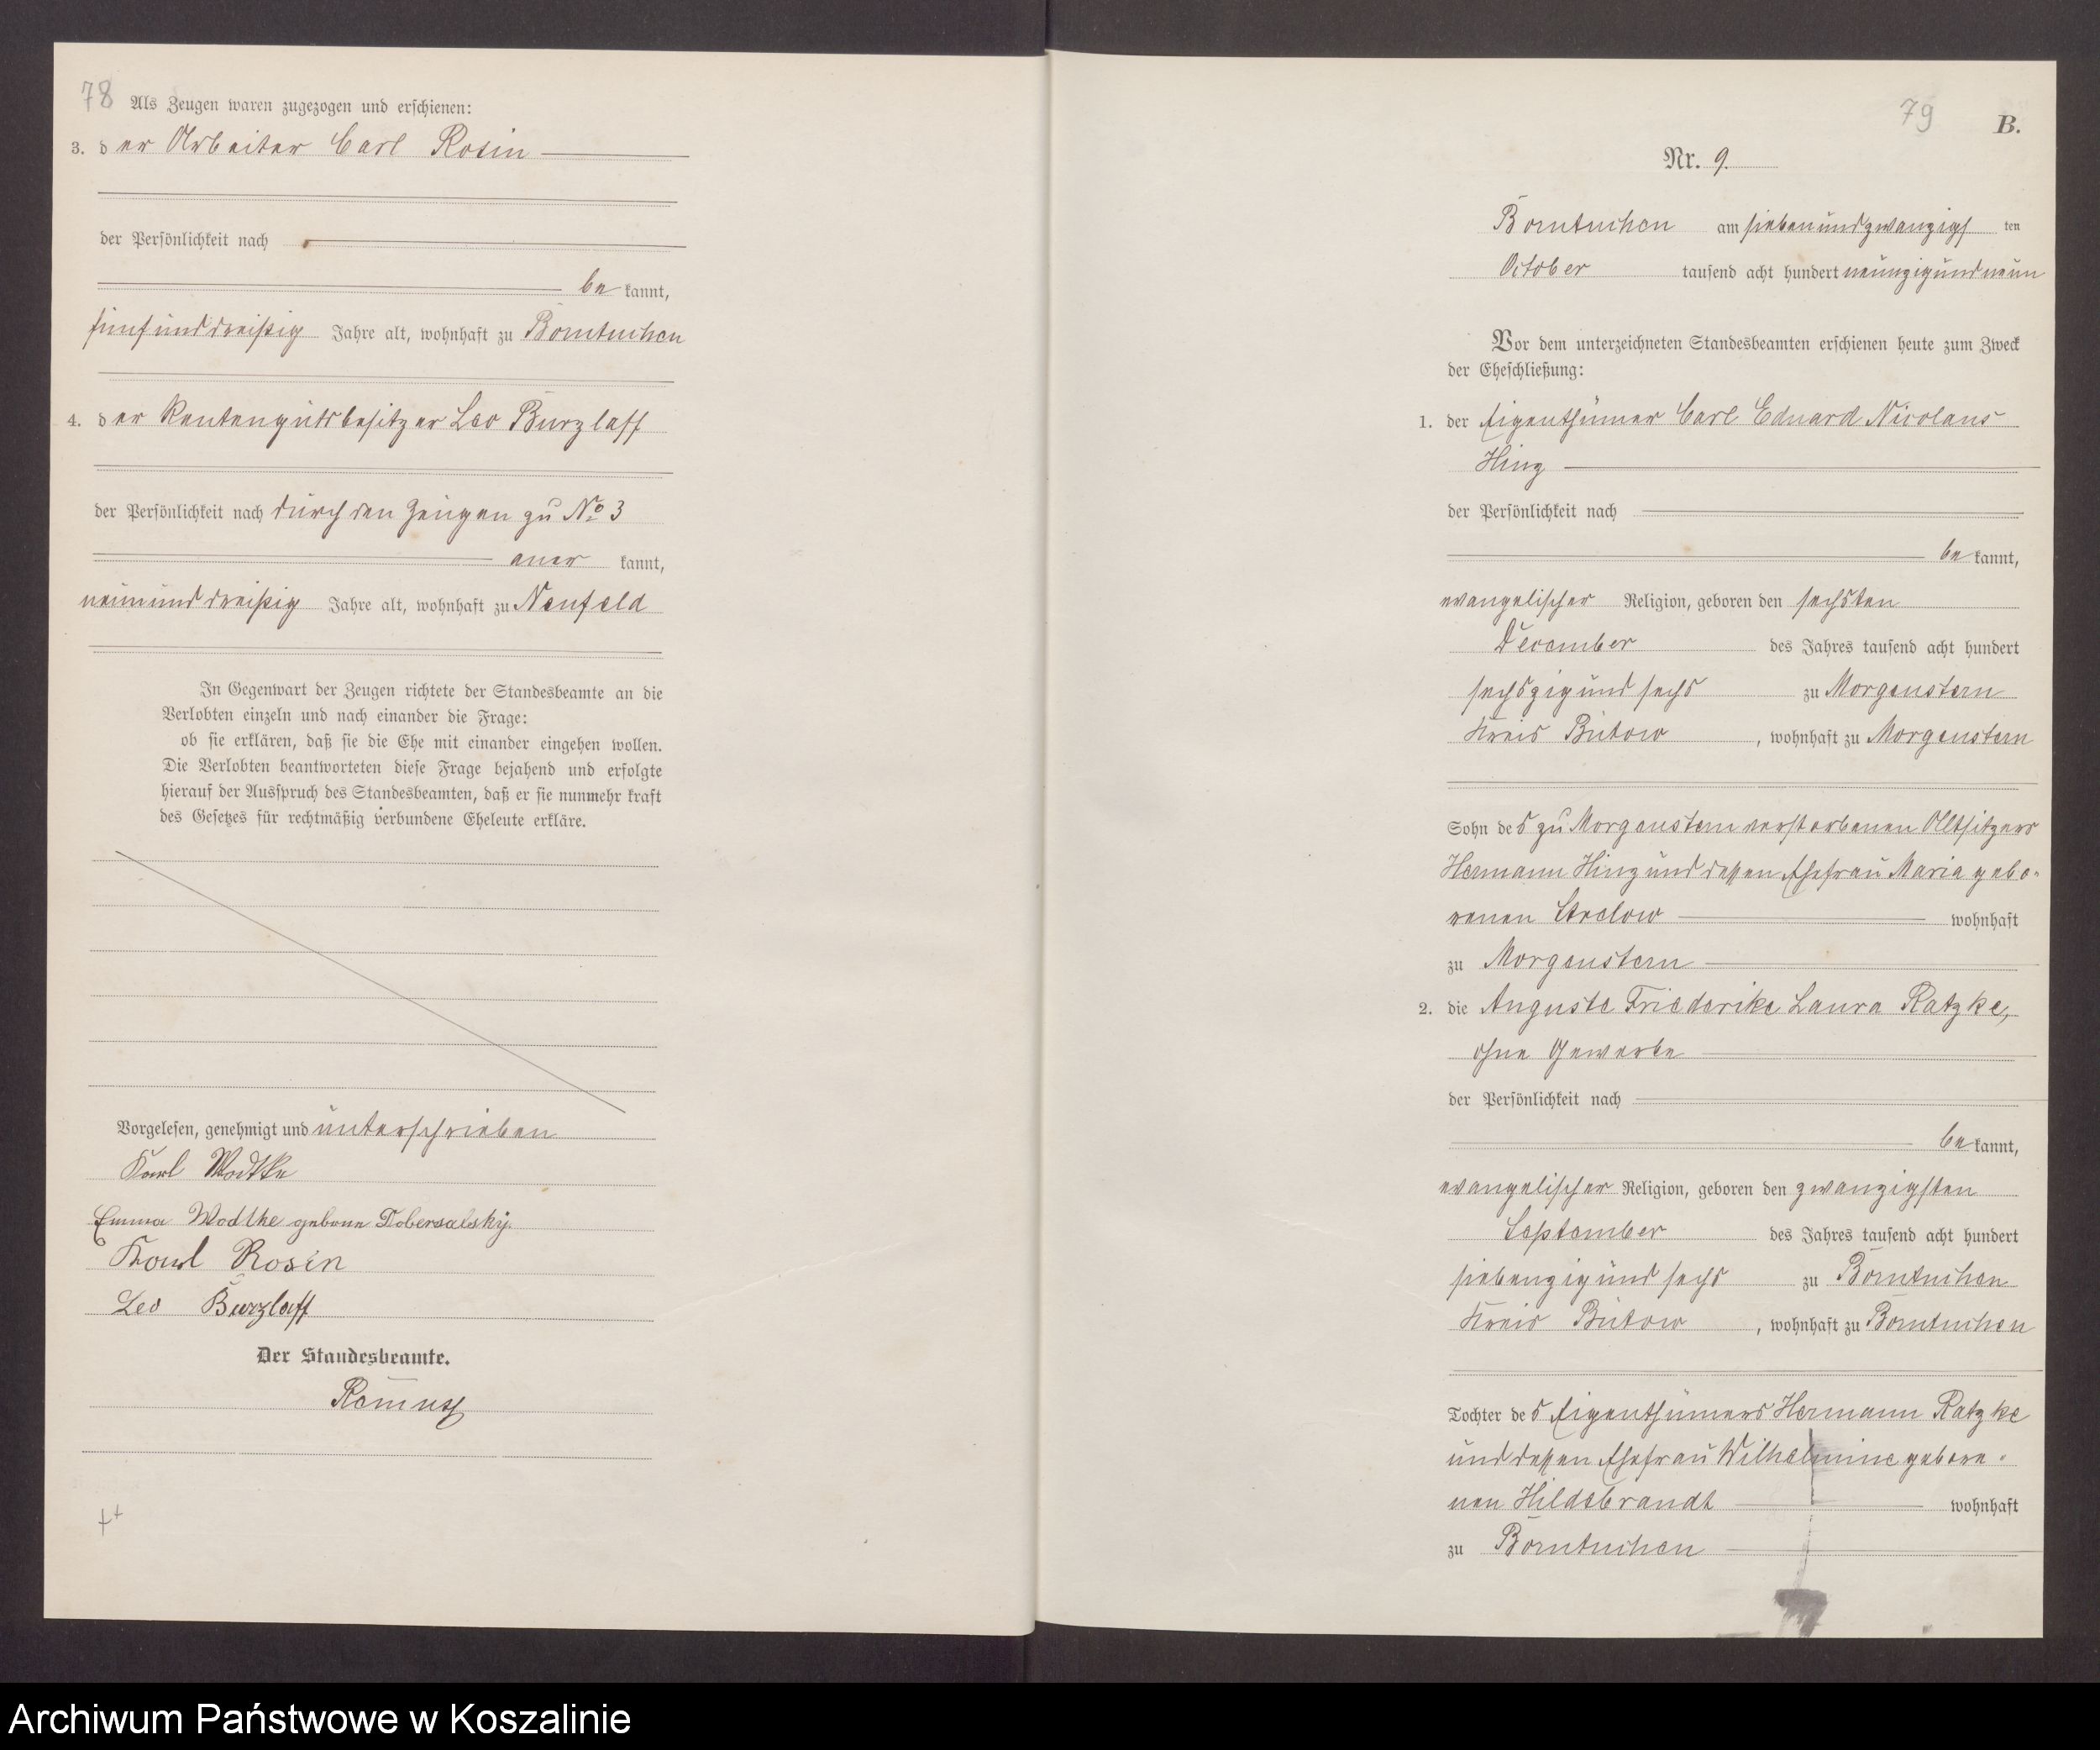 78
Als Zeugen waren zugezogen und erschienen:
3. der Arbeiter Carl Rosin
der Persönlichkeit nach
be kannt,
fünfunddreißig Jahre alt, wohnhaft zu Borntuchen
4. der Rentengutsbesitzer Leo Burzlaff
der Persönlichkeit nach durch den Zeugen zu No 3
aner kannt,
neununddreißig Jahre alt, wohnhaft zu Neufeld
In Gegenwart der Zeugen richtete der Standesbeamte an die
Verlobten einzeln und nach einander die Frage:
ob sie erklären, daß sie die Ehe mit einander eingehen wollen.
Die Verlobten beantworteten diese Frage bejahend und erfolgte
hierauf der Ausspruch des Standesbeamten, daß er sie nunmehr kraft
des Gesetzes für rechtmäßig verbundene Eheleute erkläre.
Vorgelesen, genehmigt und unterschrieben
Karl Wodtke
Emma Wodtke geborene Dobersalsky.
Karl Rosin
Leo Burzlaff
Der Standesbeamte.
79
B.
Nr. 9.
Borntuchen am siebenundzwanzigs ten
October tausend acht hundert neunzigundneun
Vor dem unterzeichneten Standesbeamten erschienen heute zum Zweck
der Eheschließung:
1. der Eigenthümer Carl Eduard Nicolaus
Hinz
der Persönlichkeit nach
be kannt,
evangelischer Religion, geboren den sechsten
December des Jahres tausend acht hundert
sechszigundsechs zu Morgenstern
Kreis Bütow, wohnhaft zu Morgenstern
Sohn des zu Morgenstern verstorbenen Altsitzers
Hermann Hinz und dessen Ehefrau Maria gebo-
renen Strelow wohnhaft
zu Morgenstern
2. die Auguste Friederike Laura Ratzke,
ohne Gewerbe
der Persönlichkeit nach
be kannt,
evangelischer Religion, geboren den zwanzigsten
September des Jahres tausend acht hundert
siebenzigundsechs zu Borntuchen
Kreis Bütow, wohnhaft zu Borntuchen
Tochter des Eigenthümers Hermann Ratzke
und dessen Ehefrau Wilhelmine gebore-
nen Hildebrandt wohnhaft
zu Borntuchen
Archiwum Państwowe w Koszalinie